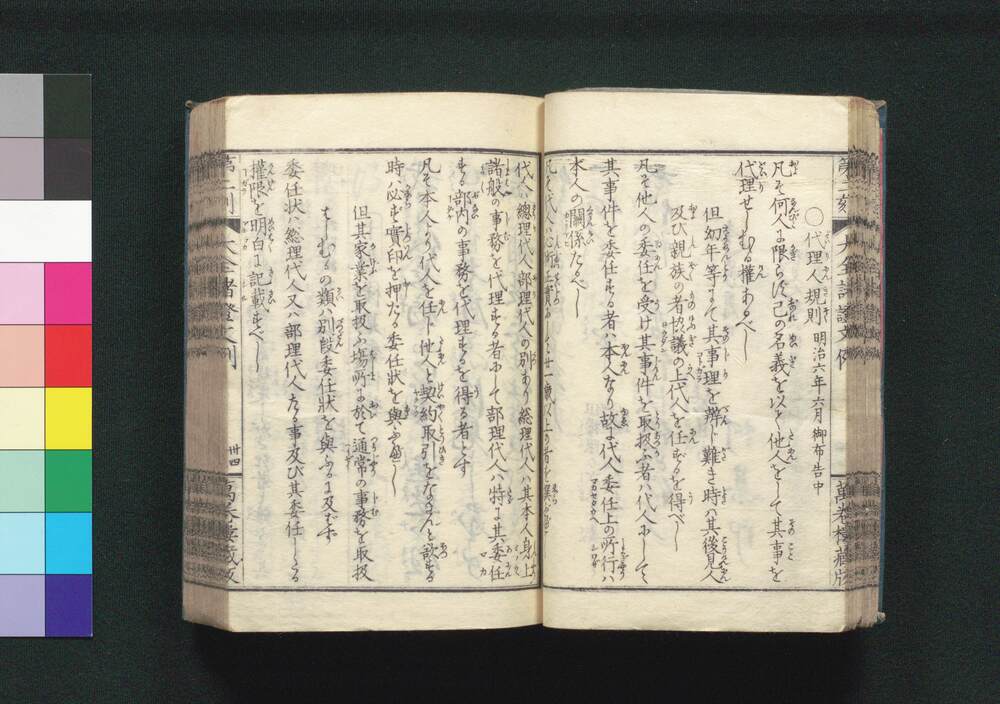 〇代理人規則 明治六年六月御布告中
凡そ何人に限らず己の名義を以て他人をして其事を
代理せしむる權あるべし
但幼年等にて其事理を辨じ難き時ハ其後見人
及び親族の者協議の上代人を任ずるを得べし
凡そ他人の委任を受け其事件を取扱ふ者ハ代人にして
其事件を委任する者ハ本人なり故に代人委任上の所行ハ
本人の關係たるべし
凡そ代人ハ
代人ハ總理代人部理代人の別あり總理代人ハ其本人身上
諸般の事務を代理する者にして部理代人ハ特に其委任
する部内の事務を代理するを得る者とす
凡そ本人より代人を任じ他人と契約取引をなさんと欲する
時ハ必ず實印を押たる委任状を與ふべし
但其家業を取扱ふ塲所に於て通常の事務を取扱
はしむるの類ハ別段委任状を與ふるに及ばず
委任状ハ總理代人又ハ部理代人たる事及び其委任したる
權限を明白に記載すべし
卅四
萬巻樓藏版